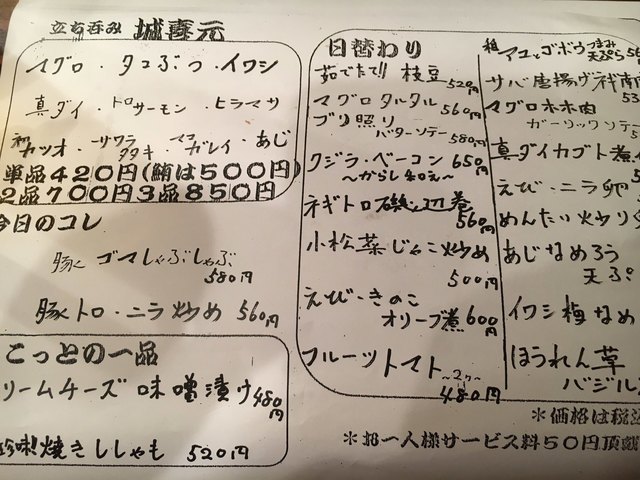 立ち呑み 城喜元
マグロ・タコぶつ・イワシ
真ダイ・トロサーモン・ヒラマサ
初カツオ・サワラタタキ・マコガレイ・あじ
単品420円(鮪は500円)
2品700円3品850円
今日のコレ
豚ゴマしゃぶしゃぶ
580円
豚トロ・ニラ炒め 560円
こっとの一品
リームチーズ 味噌漬け 480円
珍味!焼きししゃも 520円
日替わり
茹でたて!! 枝豆 520円
マグロタルタル 560円
ブリ照り
バターソテー 580円
クジラ・ベーコン 650円
〜からし和え〜
ネギトロ磯辺巻 560円
小松菜じゃこ炒め
500円
えび・きのこ
オリーブ煮 600円
フルーツトマト
480円
アユとゴボウ
つまみ天ぷら
サバ唐揚げ
マグロホホ肉
ガーリックソテー
真ダイカブト煮
えび・ニラ卵
めんたい炒り
あじなめろう
天ぷ
イワシ梅なめ
ほうれん草
バジル
*価格は税込
*お一人様サービス料50円頂戴